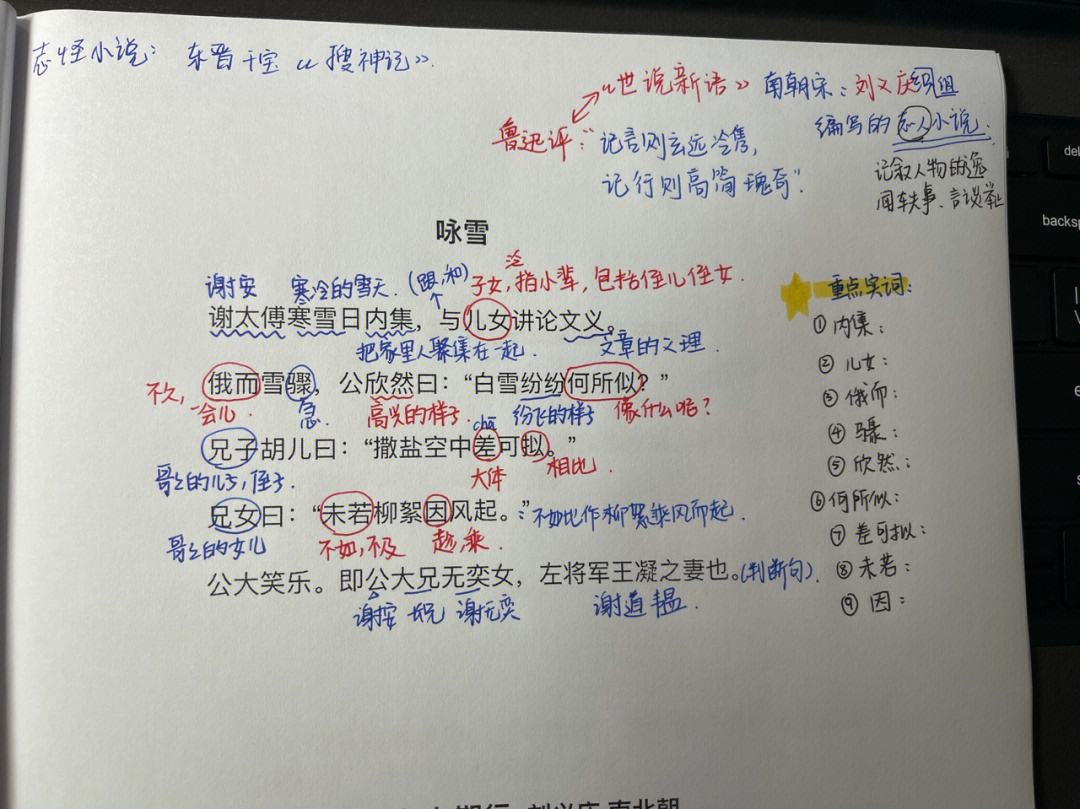 志怪小说：东晋干宝《搜神记》.
"世说新语》 南朝宋：刘义庆组织
编写的志人小说.
鲁迅评："记言则玄远冷隽，
记行则高简瑰奇".
记叙人物的逸
闻轶事、言谈举止
咏雪
谢安 寒冷的雪天.（跟,和）子女,泛指小辈,包括侄儿侄女
谢太傅寒雪日内集，与儿女讲论文义。
把家里人聚集在一起. 文章的义理.
俄而雪骤，公欣然曰：“白雪纷纷何所似？”
不久,一会儿. 急. 高兴的样子. chā 纷飞的样子 像什么呢？
兄子胡儿曰：“撒盐空中差可拟。”
哥哥的儿子,侄子. 大体 相比.
兄女曰：“未若柳絮因风起。” 不如比作柳絮乘风而起.
哥哥的女儿 不如,不及 趁,乘.
公大笑乐。即公大兄无奕女，左将军王凝之妻也。(判断句).
谢安 长兄 谢无奕 谢道韫.
重点实词：
①内集：
②儿女：
③俄而：
④骤：
⑤欣然：
⑥何所似：
⑦差可拟：
⑧未若：
⑨因：